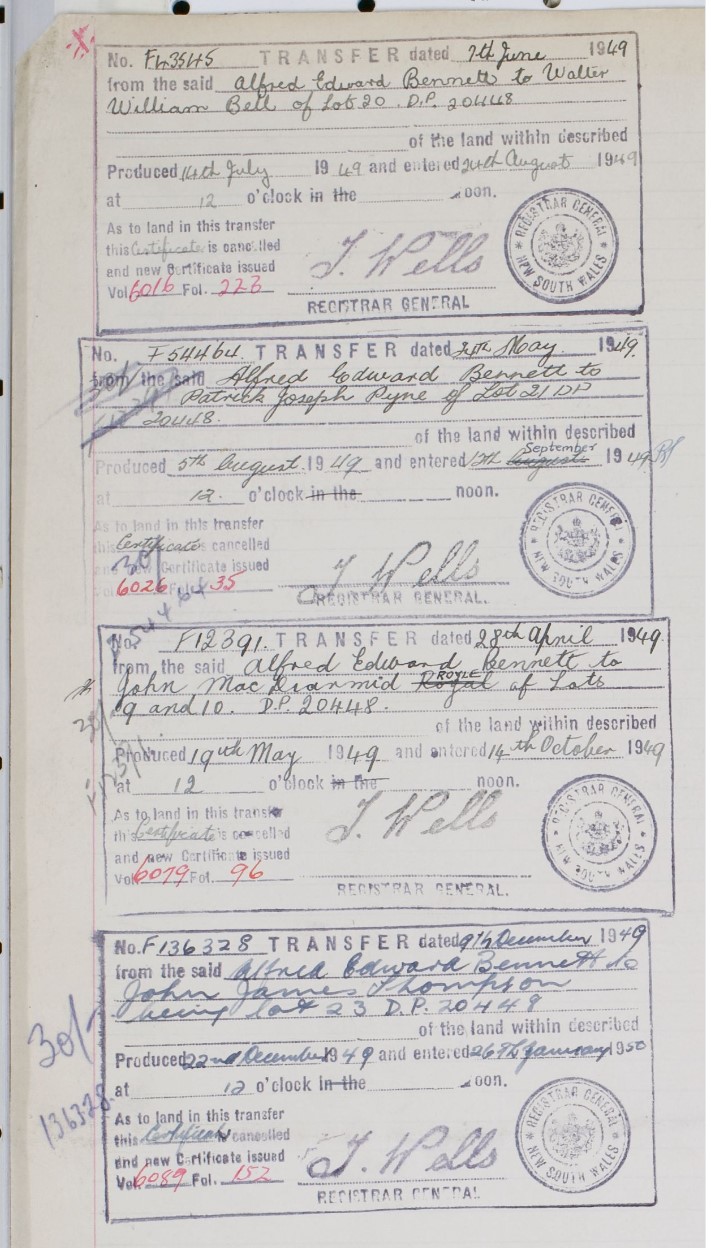 No. F43545 TRANSFER dated 7th June 1949
from the said Alfred Edward Bennett to Walter
William Bell of Lot 20. D.P. 20448
of the land within described
Produced 14th July 1949 and entered 24th August 1949
at 12 o'clock in the noon.
As to land in this transfer
this Certificate is cancelled
and new Certificate issued
Vol. 6016 Fol. 223
J. Wells
REGISTRAR GENERAL
REGISTRAR GENERAL
NEW SOUTH WALES
No. F54464. TRANSFER dated May 1949.
from the said Alfred Edward Bennett to
Patrick Joseph Pyne of Lot 21 DP
20448.
of the land within described
September
Produced 5th August 1949 and entered 12th August 1949
at 12. o'clock in the noon.
As to land in this transfer
this Certificate is cancelled
and new Certificate issued
Vol. 6026 Fol. 35
54464
J Wells
REGISTRAR GENERAL.
REGISTRAR GENERAL
NEW SOUTH WALES
No. F12391. TRANSFER dated 28th April 1949.
from the said Alfred Edward Bennett to
ROYLE
John MacDiarmid Royal of Lots
9 and 10. D.P. 20448.
of the land within described
Produced 19th May 1949 and entered 14th October 1949
at 12 o'clock in the noon.
As to land in this transfer
this Certificate is cancelled
and new Certificate issued
Vol. 6079 Fol. 96
J. Wells
REGISTRAR GENERAL.
REGISTRAR GENERAL
NEW SOUTH WALES
No. F136328 TRANSFER dated 9th December 1949
from the said Alfred Edward Bennett to
John James Thompson
being lot 23 D.P. 20448
of the land within described
Produced 22nd December 1949 and entered 26th January 1950
at 12 o'clock in the noon.
30/-
136328
As to land in this transfer
this Certificate cancelled
and new Certificate issued
Vol. 6089 Fol. 152
J. Wells
REGISTRAR GENERAL
REGISTRAR GENERAL
NEW SOUTH WALES